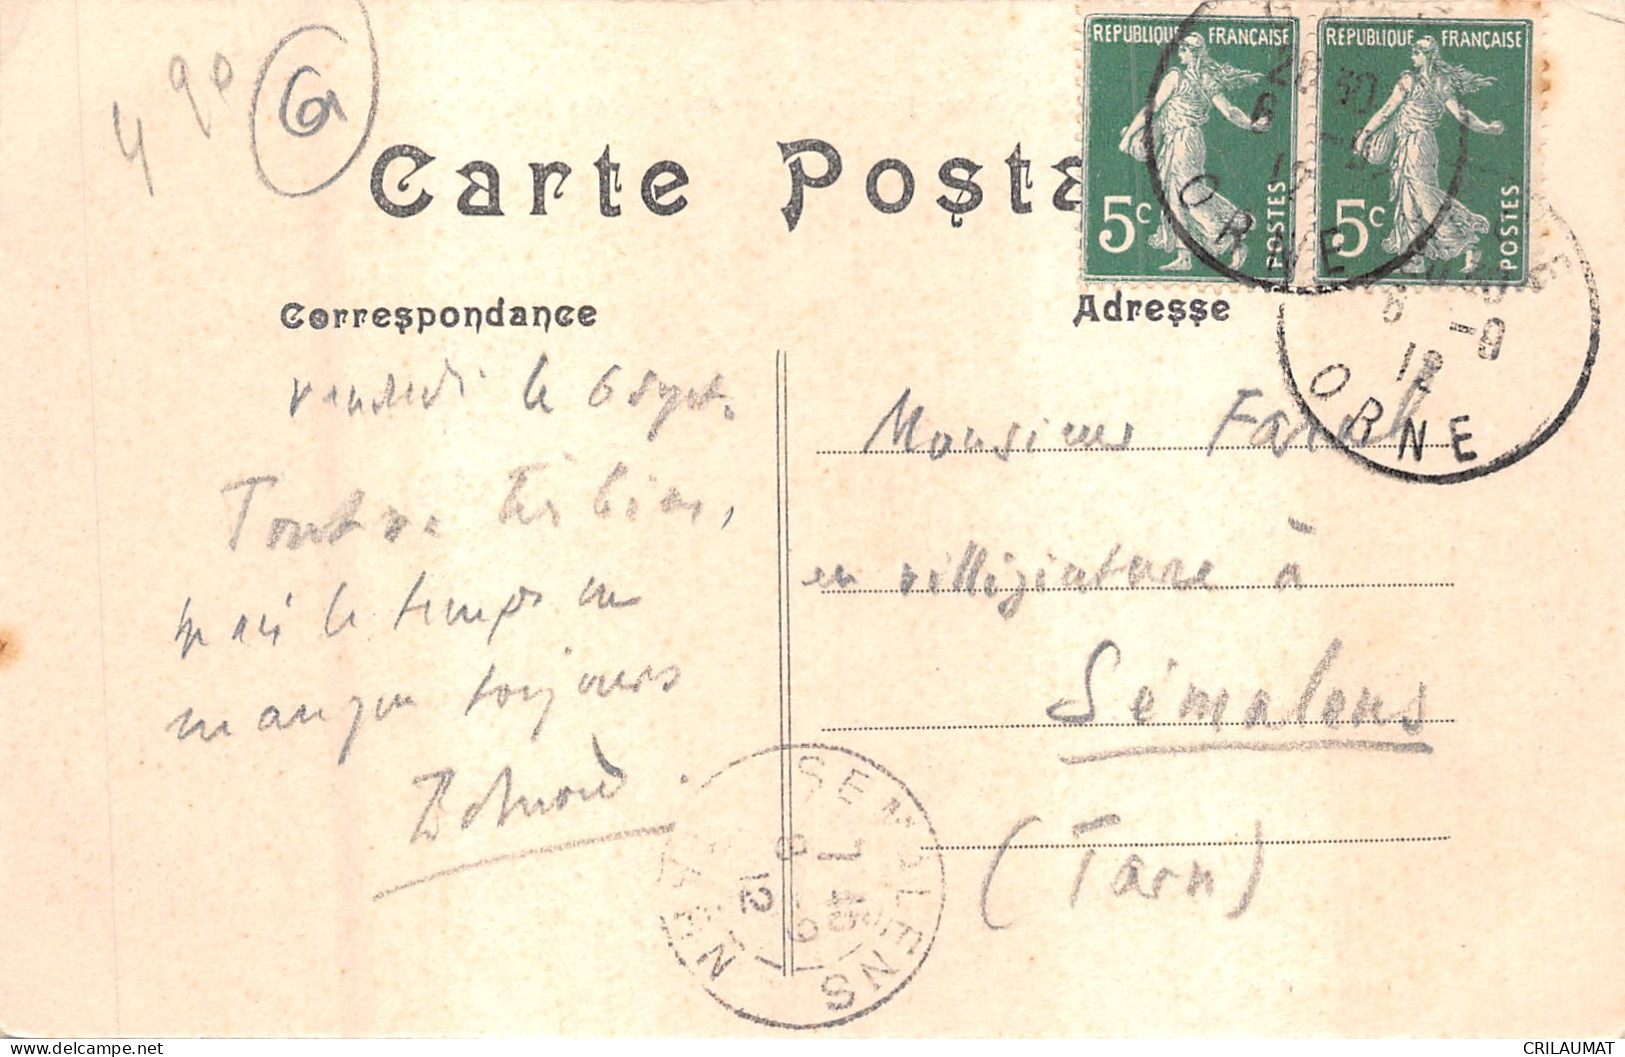 4 90
G
Carte Posta
RÉPUBLIQUE FRANÇAISE
5c
POSTES
RÉPUBLIQUE FRANÇAISE
5c
POSTES
6 -9
12
ORNE
6 -9
12
ORNE
Correspondance
Adresse
vendredi le 6 sept.
Tout va très bien,
mais le temps me
manque toujours
Edmond
Monsieur
en villégiature à
Sémalens
(Tarn)
SEMALENS
TARN
12
delcampe.net
CRILAUMAT